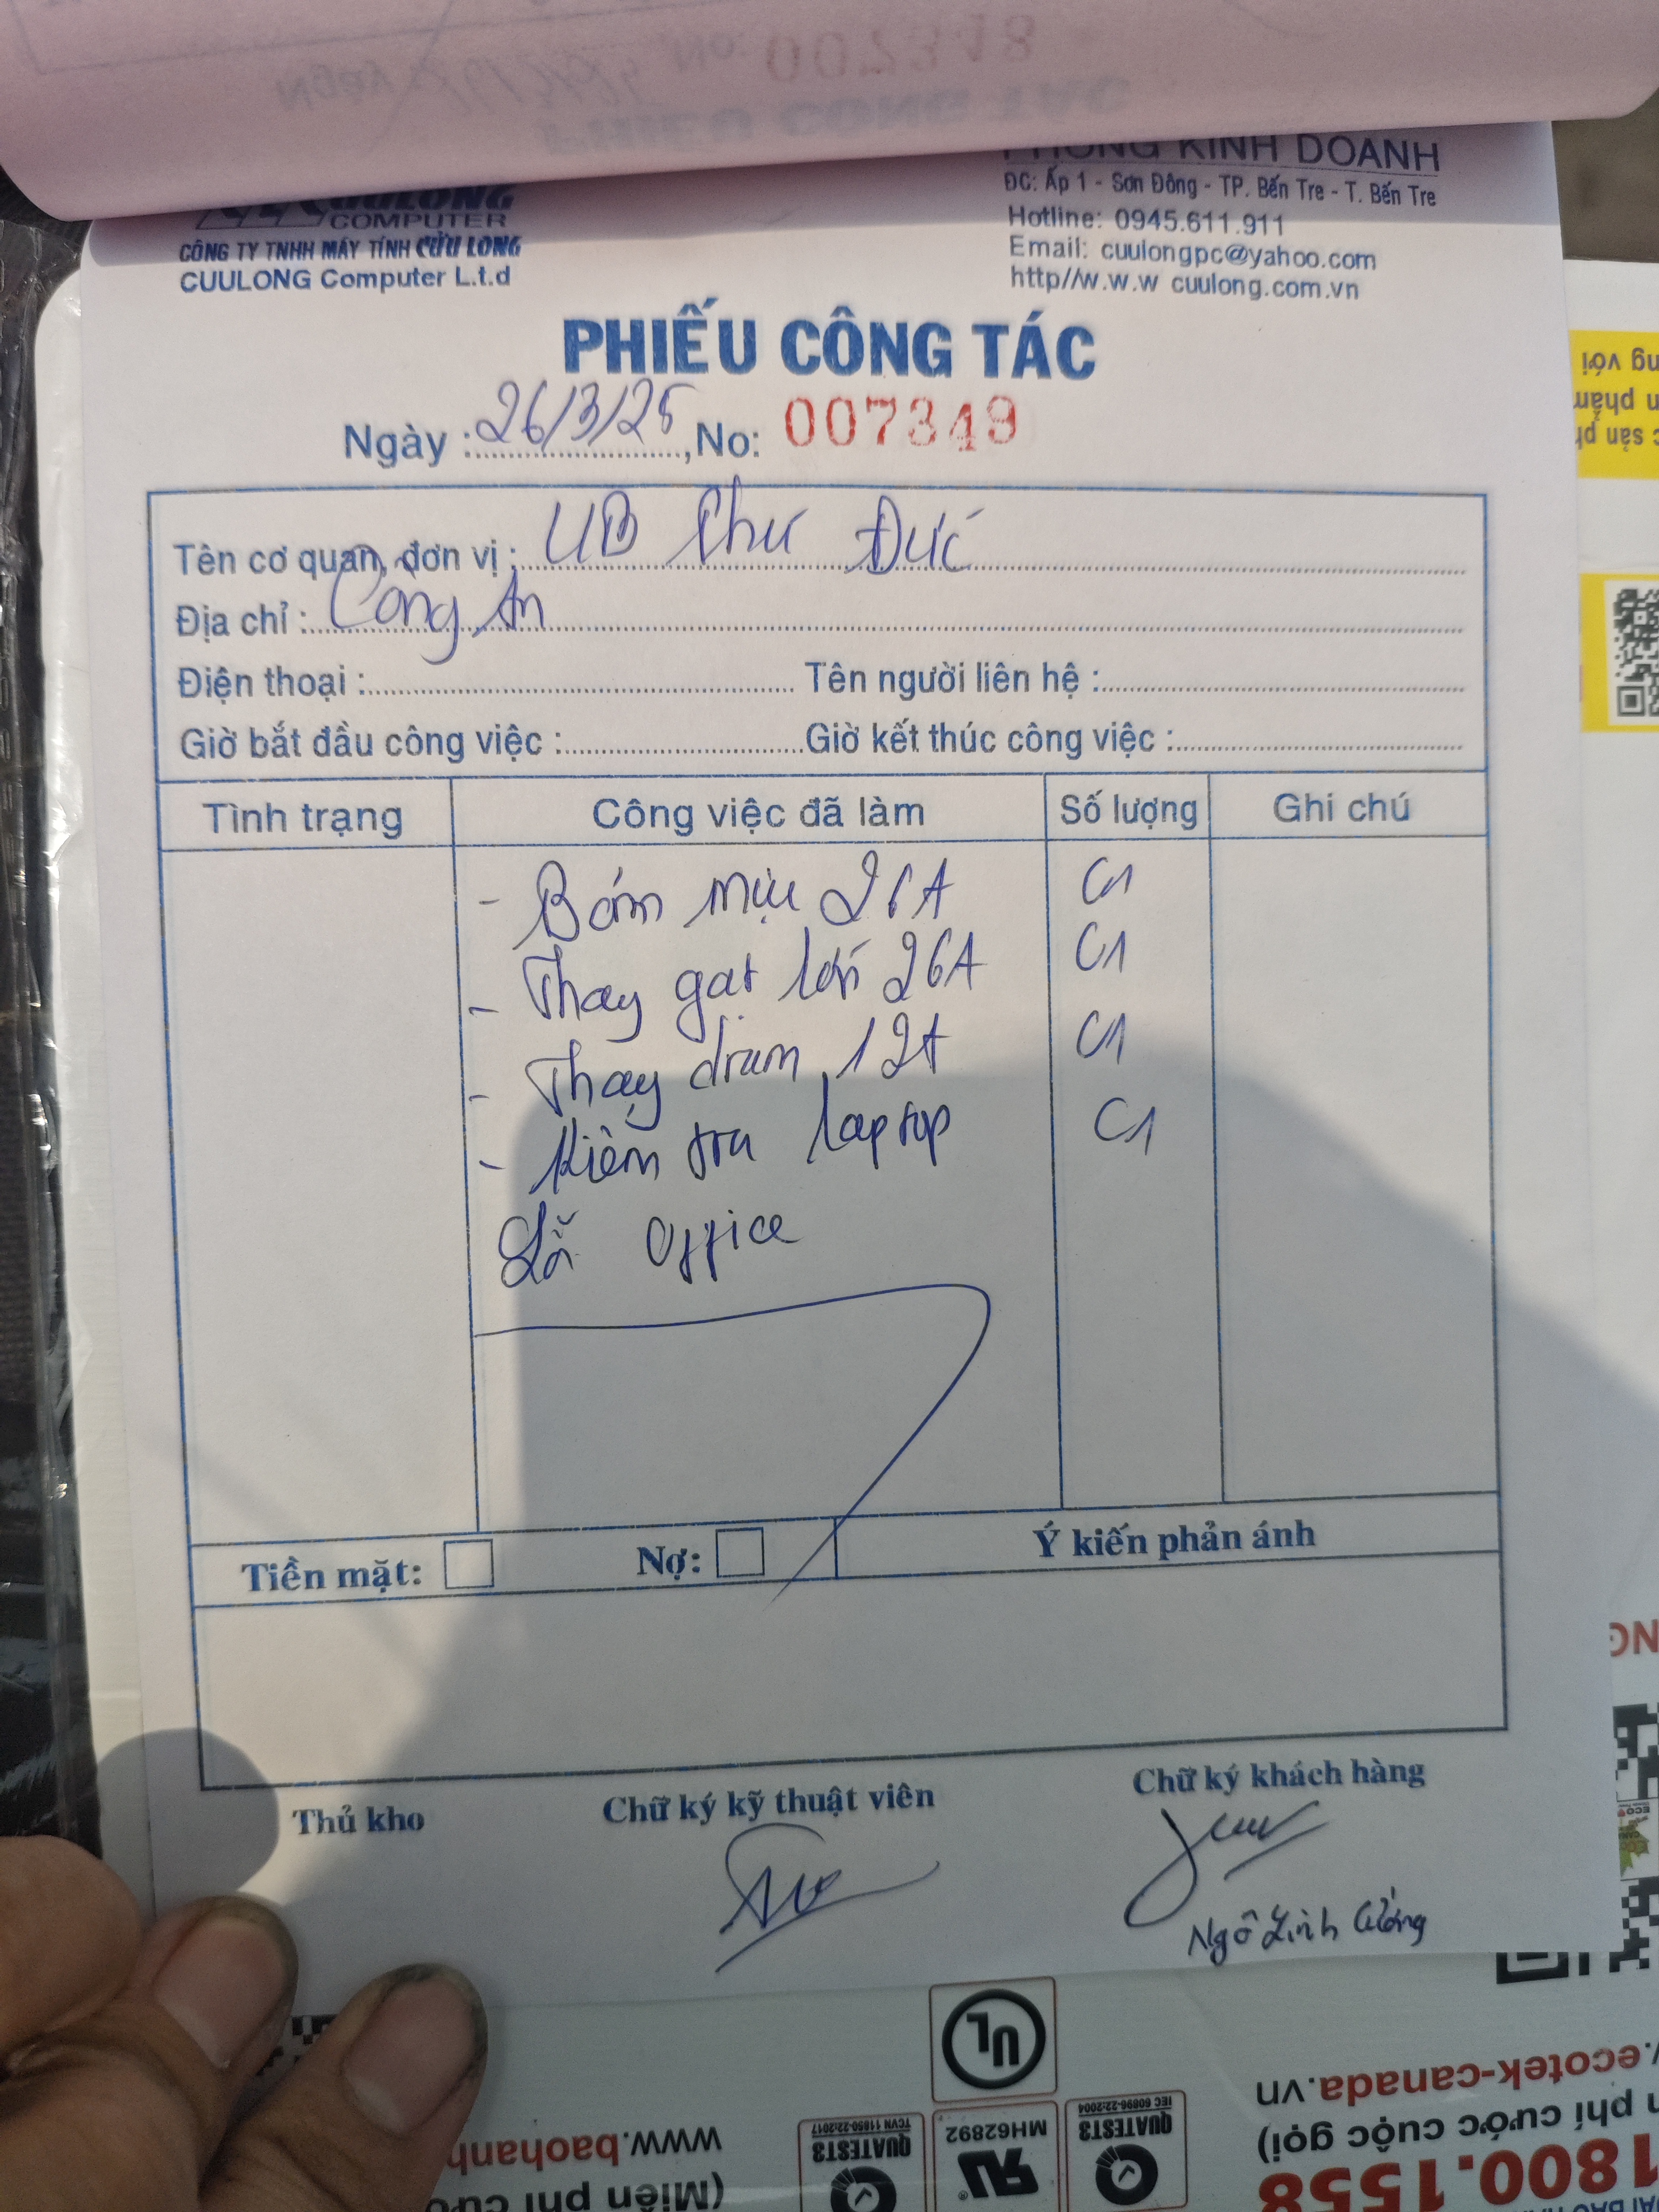 No: 007318
PHIẾU CÔNG TÁC
CUULONG
COMPUTER
CÔNG TY TNHH MÁY TÍNH CỬU LONG
CUULONG Computer L.t.d
PHÒNG KINH DOANH
ĐC: Ấp 1 - Sơn Đông - TP. Bến Tre - T. Bến Tre
Hotline: 0945.611.911
Email: cuulongpc@yahoo.com
http//w.w.w cuulong.com.vn
PHIẾU CÔNG TÁC
Ngày : 26/3/25, No: 007349
Tên cơ quan, đơn vị : UB Phú Đức
Địa chỉ : Công An
Điện thoại : Tên người liên hệ :
Giờ bắt đầu công việc : Giờ kết thúc công việc :
Tình trạng Công việc đã làm Số lượng Ghi chú
- Bơm mực 26A C1
- Thay gạt lớn 26A C1
- Thay drum 12A C1
- Kiểm tra laptop C1
Office
Tiền mặt: Nợ: Ý kiến phản ánh
Thủ kho Chữ ký kỹ thuật viên Chữ ký khách hàng
Ngô Linh Cường
UL
QUATEST3
TCVN 11850-22:2017
MH62892
QUATEST3
IEC 60896-22:2004
.ecotek-canada.vn
n phí cước cuộc gọi)
1800.1558
www.baohanh
(Miễn phí cước
ng với
n phẩm